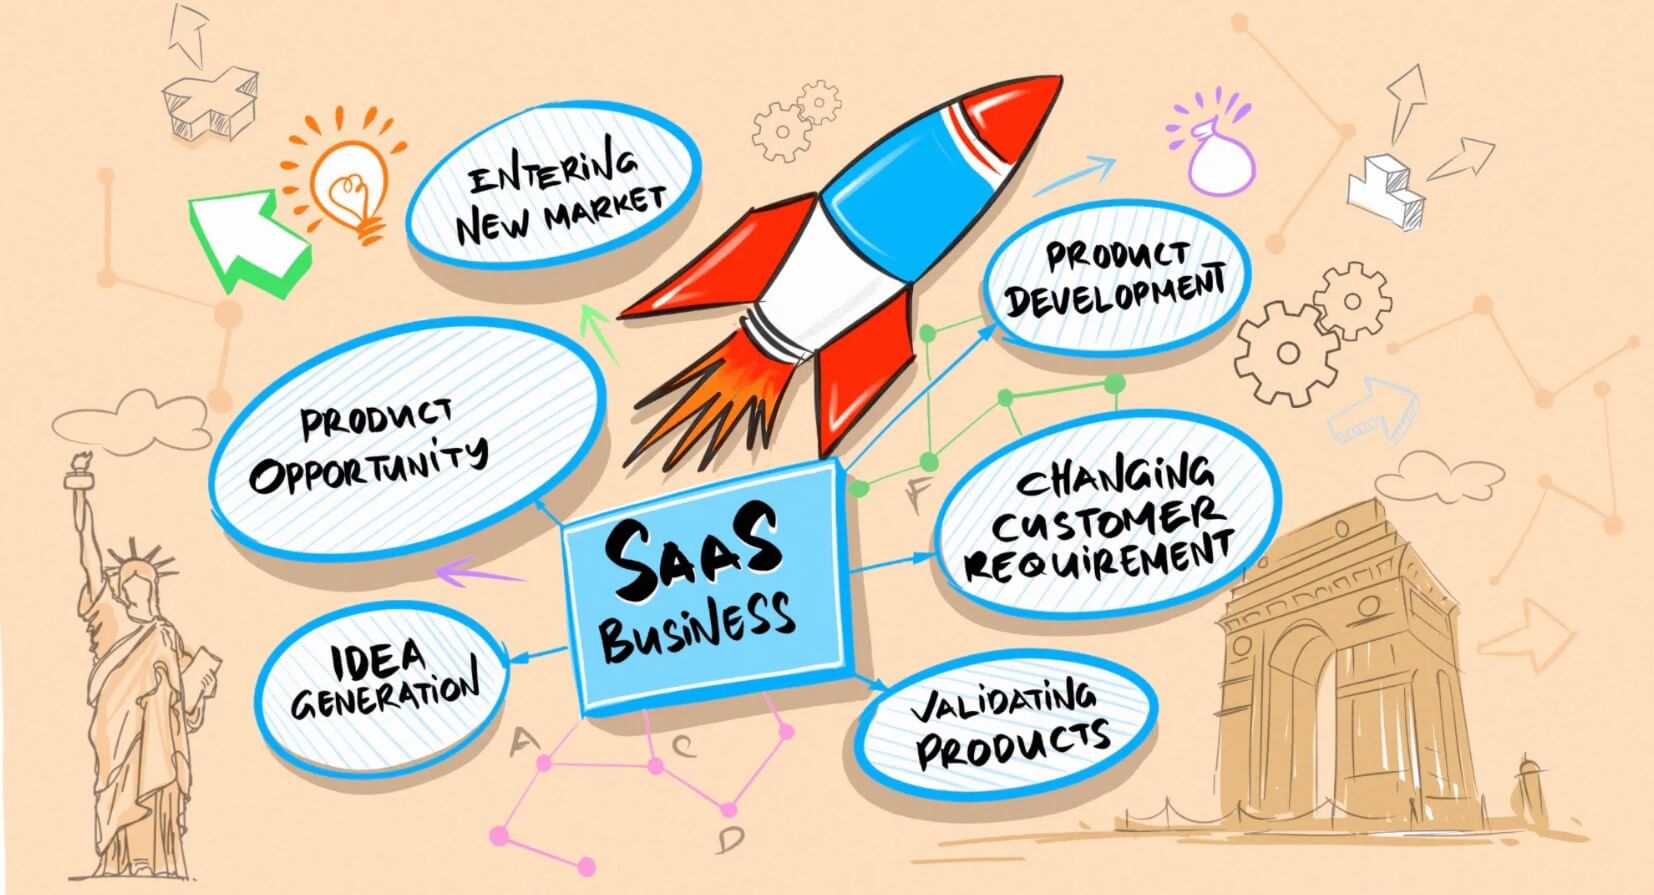 ENTERING
NEW MARKET
PRODUCT
DEVELOPMENT
PRODUCT
OPPORTUNITY
CHANGING
CUSTOMER
REQUIREMENT
F
SAAS
BUSINESS
IDEA
GENERATION
VALIDATING
PRODUCTS
A
C
D